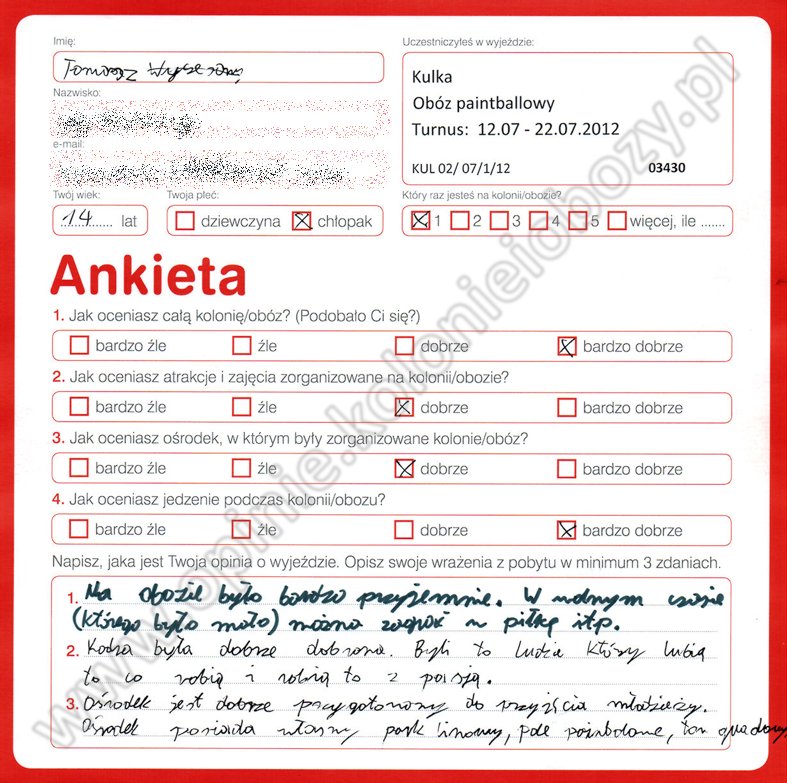 Imię:
Tomasz
Uczestniczyłeś w wyjeździe:
Kulka
Obóz paintballowy
Turnus: 12.07 - 22.07.2012
KUL 02/ 07/1/12 03430
Nazwisko:
e-mail:
Twój wiek:
14 lat
Twoja płeć:
dziewczyna chłopak
Który raz jesteś na kolonii/obozie?
1 2 3 4 5 więcej, ile .......
Ankieta
1. Jak oceniasz całą kolonię/obóz? (Podobało Ci się?)
bardzo źle źle dobrze bardzo dobrze
2. Jak oceniasz atrakcje i zajęcia zorganizowane na kolonii/obozie?
bardzo źle źle dobrze bardzo dobrze
3. Jak oceniasz ośrodek, w którym były zorganizowane kolonie/obóz?
bardzo źle źle dobrze bardzo dobrze
4. Jak oceniasz jedzenie podczas kolonii/obozu?
bardzo źle źle dobrze bardzo dobrze
Napisz, jaka jest Twoja opinia o wyjeździe. Opisz swoje wrażenia z pobytu w minimum 3 zdaniach.
1. Na obozie było bardzo przyjemnie. W wolnym czasie
(którego było mało) można zagrać w piłkę itp.
2. Kadra była dobrze dobrana. Byli to ludzie którzy lubią
to co robią i robią to z pasją.
3. Ośrodek jest dobrze przygotowany do przyjęcia młodzieży.
Ośrodek posiada własny park linowy, pole paintbolowe, tor quadowy
www.opinie.kolonieiobozy.pl